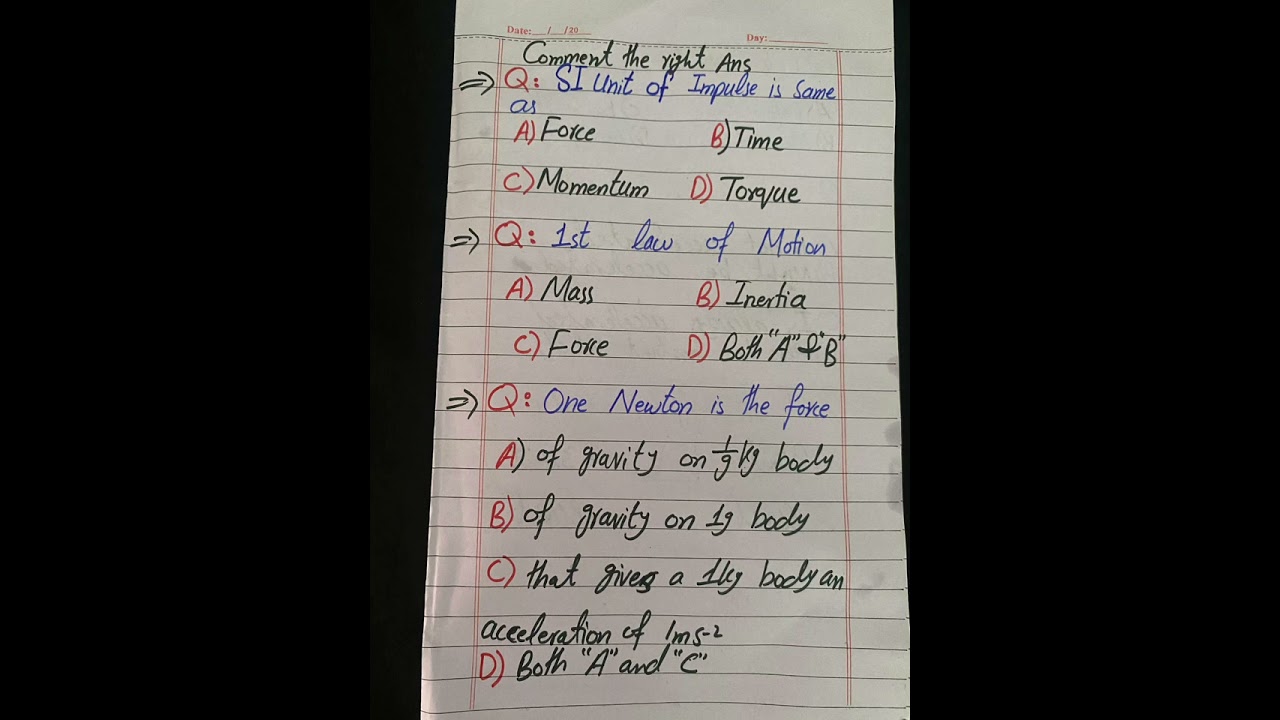 Date:___/___/20___ Day:___________
Comment the right Ans
⇒ Q: SI Unit of Impulse is same
as
A) Force B) Time
C) Momentum D) Torque
⇒ Q: 1st law of Motion
A) Mass B) Inertia
C) Force D) Both "A" & "B"
⇒ Q: One Newton is the force
A) of gravity on 1/g kg body
B) of gravity on 1g body
C) that gives a 1kg body an
acceleration of 1ms-2
D) Both "A" and "C"